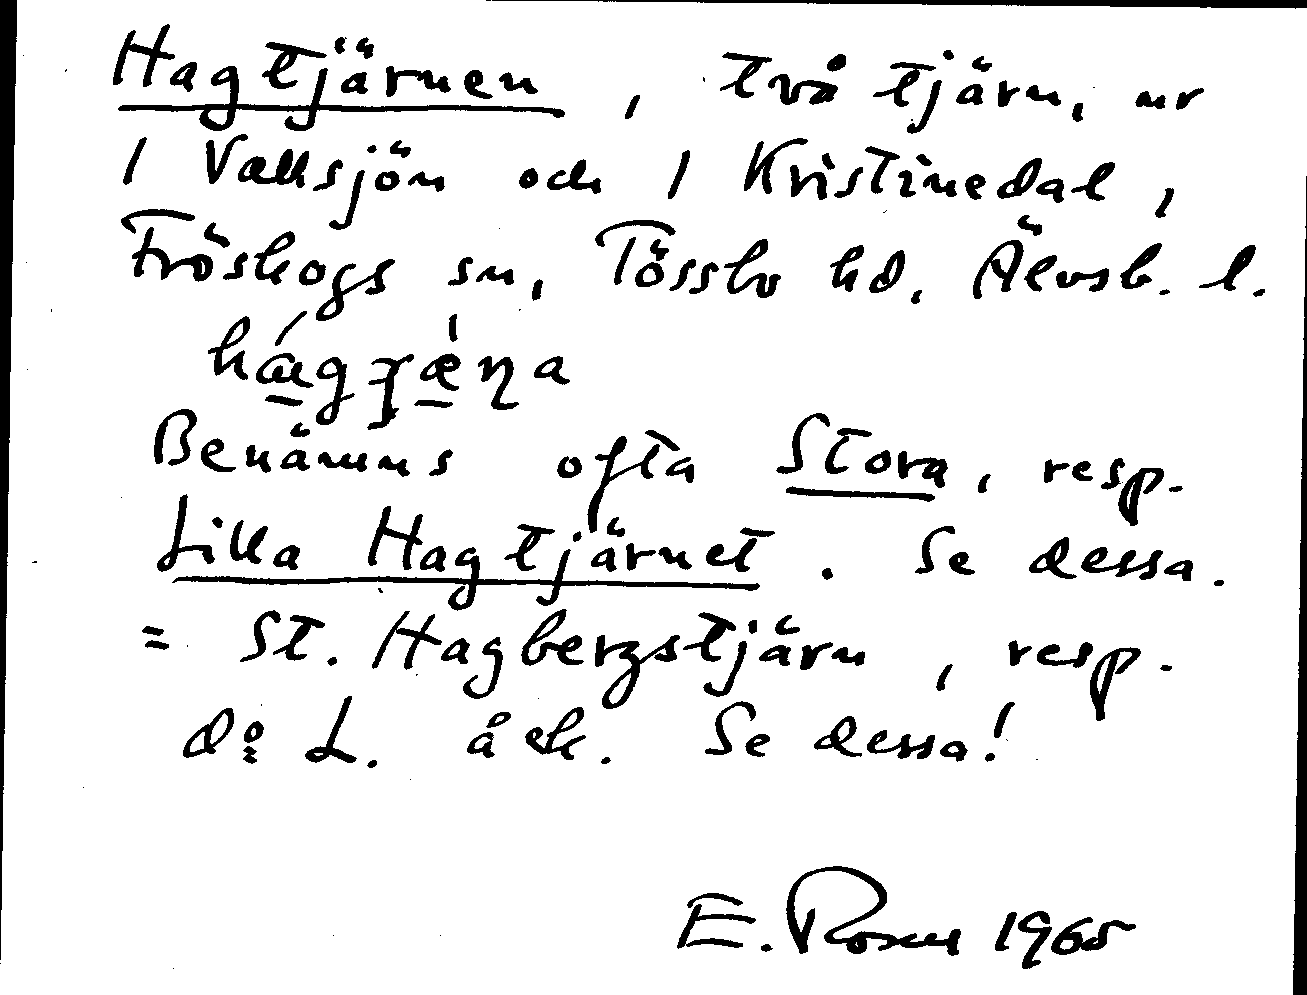 Hagtjärnen, två tjärn, nr
1 Vallsjön och 1 Kristinedal,
Fröskogs sn, Tössbo hd, Älvsb. l.
Benämns ofta Stora, resp.
Lilla Hagtjärnet. Se dessa.
= St. Hagbergstjärn, resp.
d:o L. å ek. Se dessa!
E. 1965